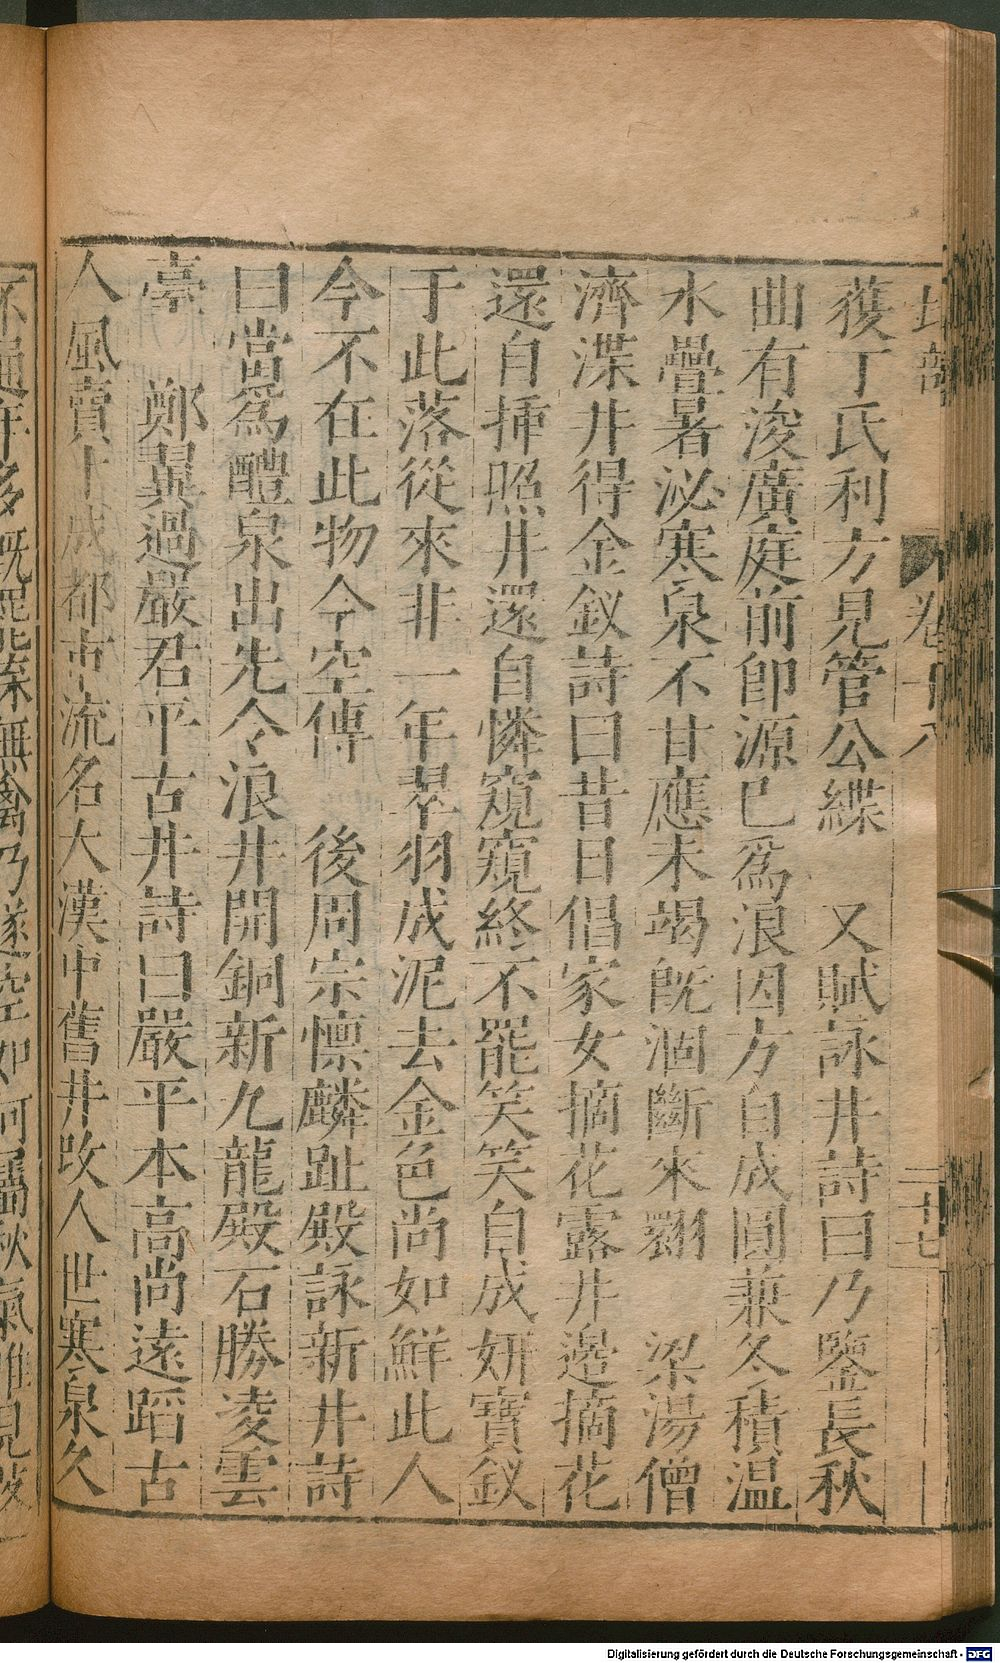 蒦丁氏利方見管公緤　又賦詠井詩曰乃鑒長秋
曲有浚廣庭前即源已爲浪因方自成圓兼冬積溫
水疊暑泌寒泉不甘應未竭旣涸斷來翾　梁湯僧
濟渫井得金釵詩曰昔日倡家女摘花露井邊摘花
還自揷照井還自憐窺窺終不罷笑笑自成妍寶釵
于此落從來非一年翠羽成泥去金色尚如鮮此人
今不在此物今空傳　後周宗懍麟趾殿詠新井詩
曰當爲醴泉出先令浪井開銅新九龍殿石勝凌雲
臺　鄭翼過嚴君平古井詩曰嚴平本高尚遠蹈古
人風賣卜成都市流名大漢中舊井改人世寒泉久
卷十八
二十七
Digitalisierung gefördert durch die Deutsche Forschungsgemeinschaft - DFG